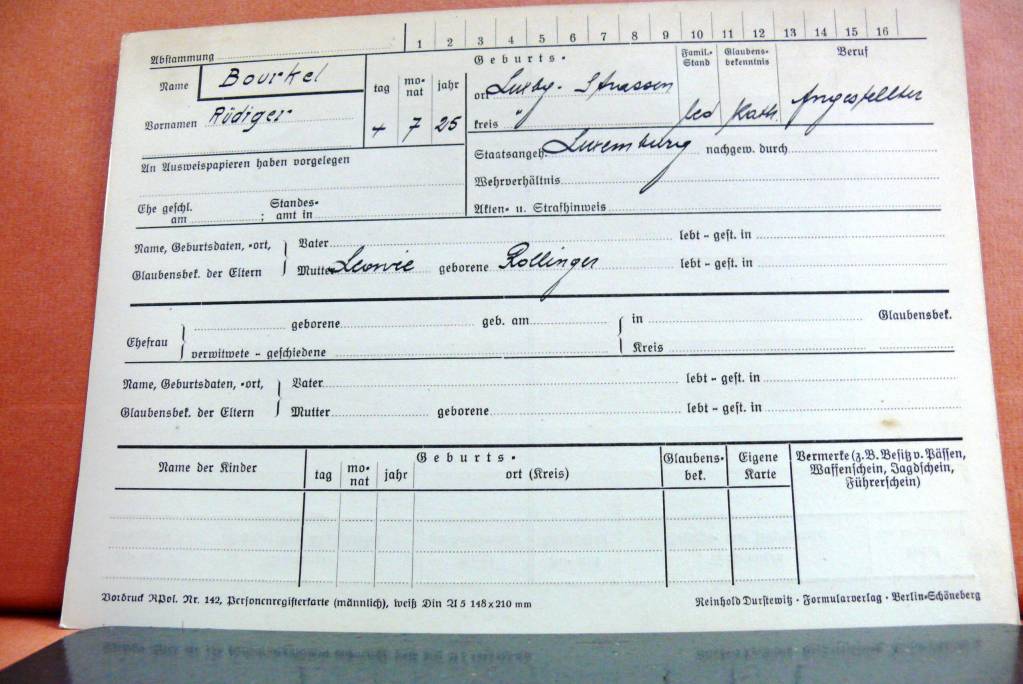 1 2 3 4 5 6 7 8 9 10 11 12 13 14 15 16
Abstammung
Name Bourkel
Vornamen Rüdiger
tag monat jahr
4 7 25
Geburts-
ort Luxbg. - Strassen
kreis "
Famil.-Stand
led
Glaubens-bekenntnis
Kath.
Beruf
Angestellter
An Ausweispapieren haben vorgelegen
Staatsangeh. Luxemburg nachgew. durch
Wehrverhältnis
Ehe geschl. am ; Standes-amt in
Akten- u. Strafhinweis
Name, Geburtsdaten, -ort,
Glaubensbek. der Eltern
Vater lebt - gest. in
Mutter Leonie geborene Rollinger lebt - gest. in
Ehefrau
geborene geb. am in Glaubensbek.
verwitwete - geschiedene Kreis
Name, Geburtsdaten, -ort,
Glaubensbek. der Eltern
Vater lebt - gest. in
Mutter geborene lebt - gest. in
Name der Kinder
Geburts-
tag monat jahr ort (Kreis)
Glaubens-bek.
Eigene Karte
Vermerke (z.B. Besitz v. Pässen,
Waffenschein, Jagdschein,
Führerschein)
Vordruck RPol. Nr. 142, Personenregisterkarte (männlich), weiß Din A 5 148 x 210 mm
Reinhold Durstewitz · Formularverlag · Berlin-Schöneberg